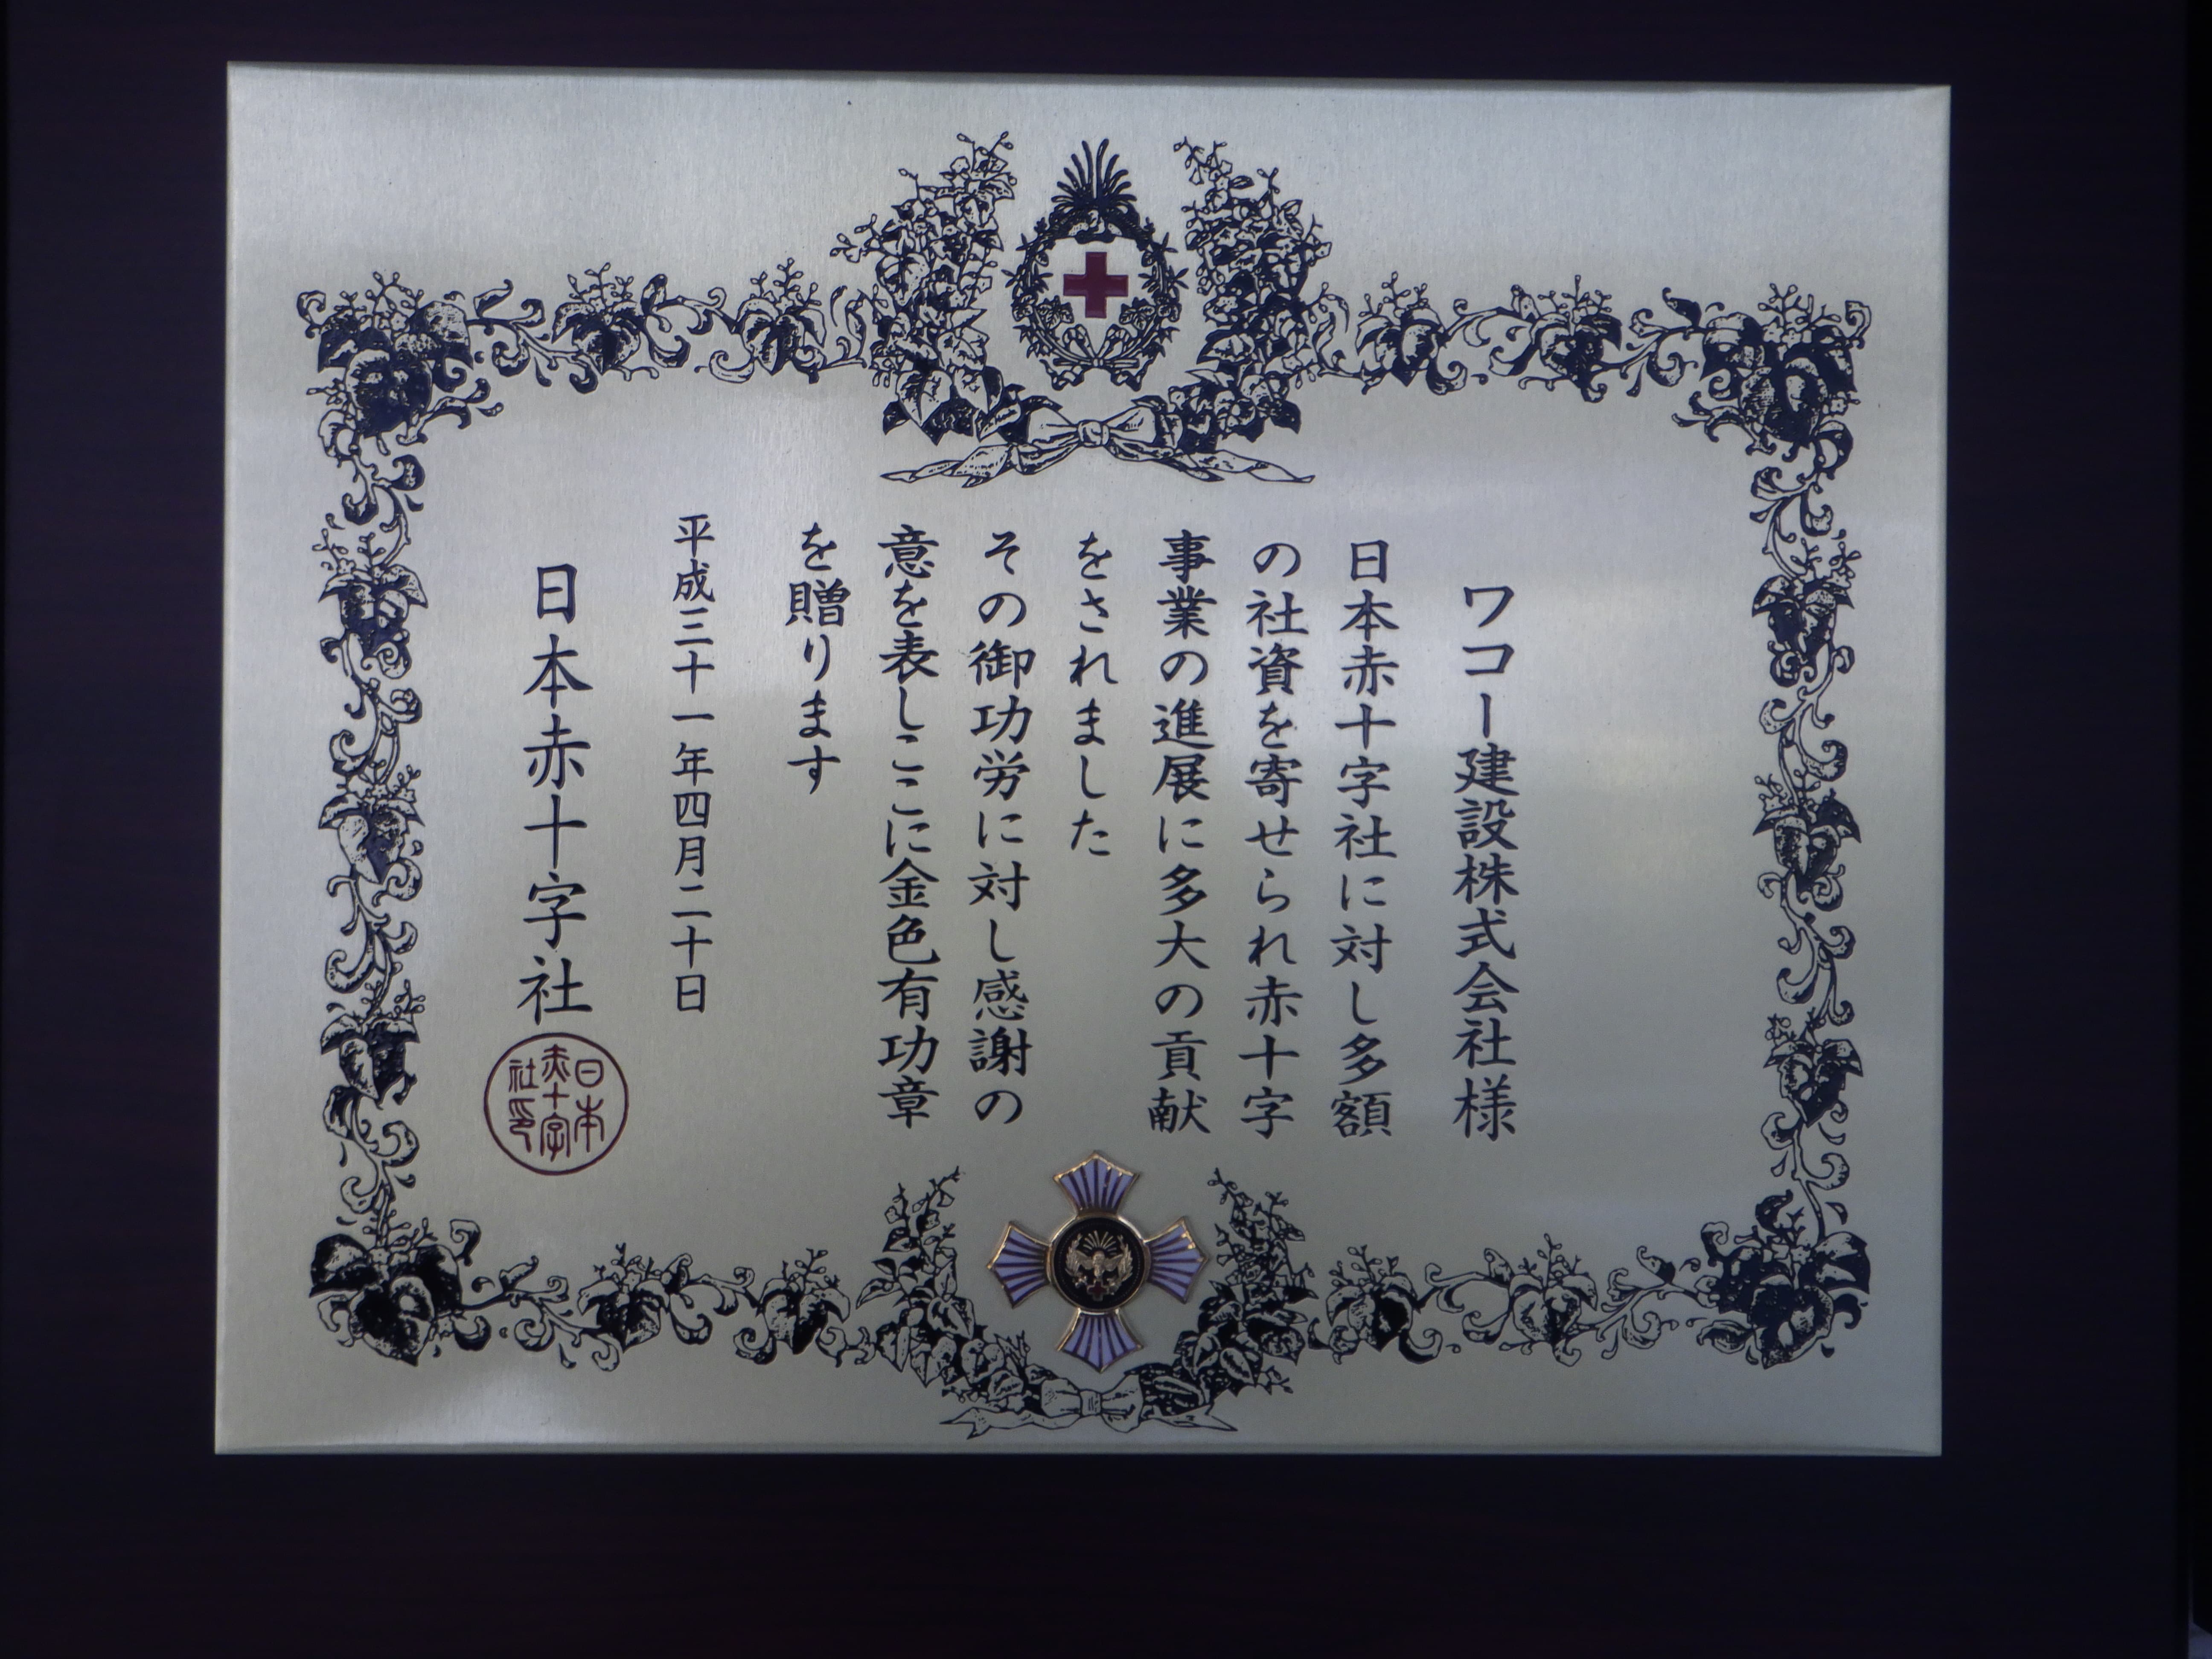 ワコー建設株式会社様
日本赤十字社に対し多額
の社資を寄せられ赤十字
事業の進展に多大の貢献
をされました
その御功労に対し感謝の
意を表しここに金色有功章
を贈ります
平成三十一年四月二十日
日本赤十字社
日本
赤十字
社印